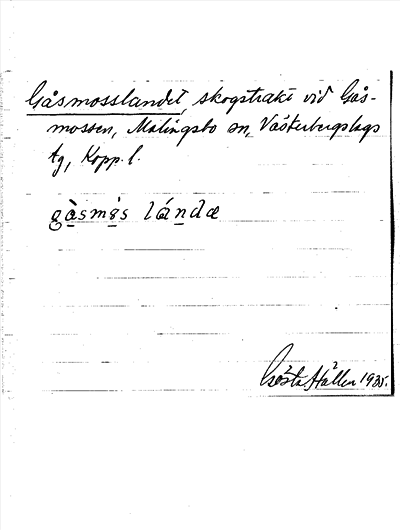 Gåsmosslandet, skogstrakt vid Gås-
mossen, Malingsbo sn, Västerbergslags
tg, Kopp. l.
gåsmås lándæ
Gösta Hållen 1935.